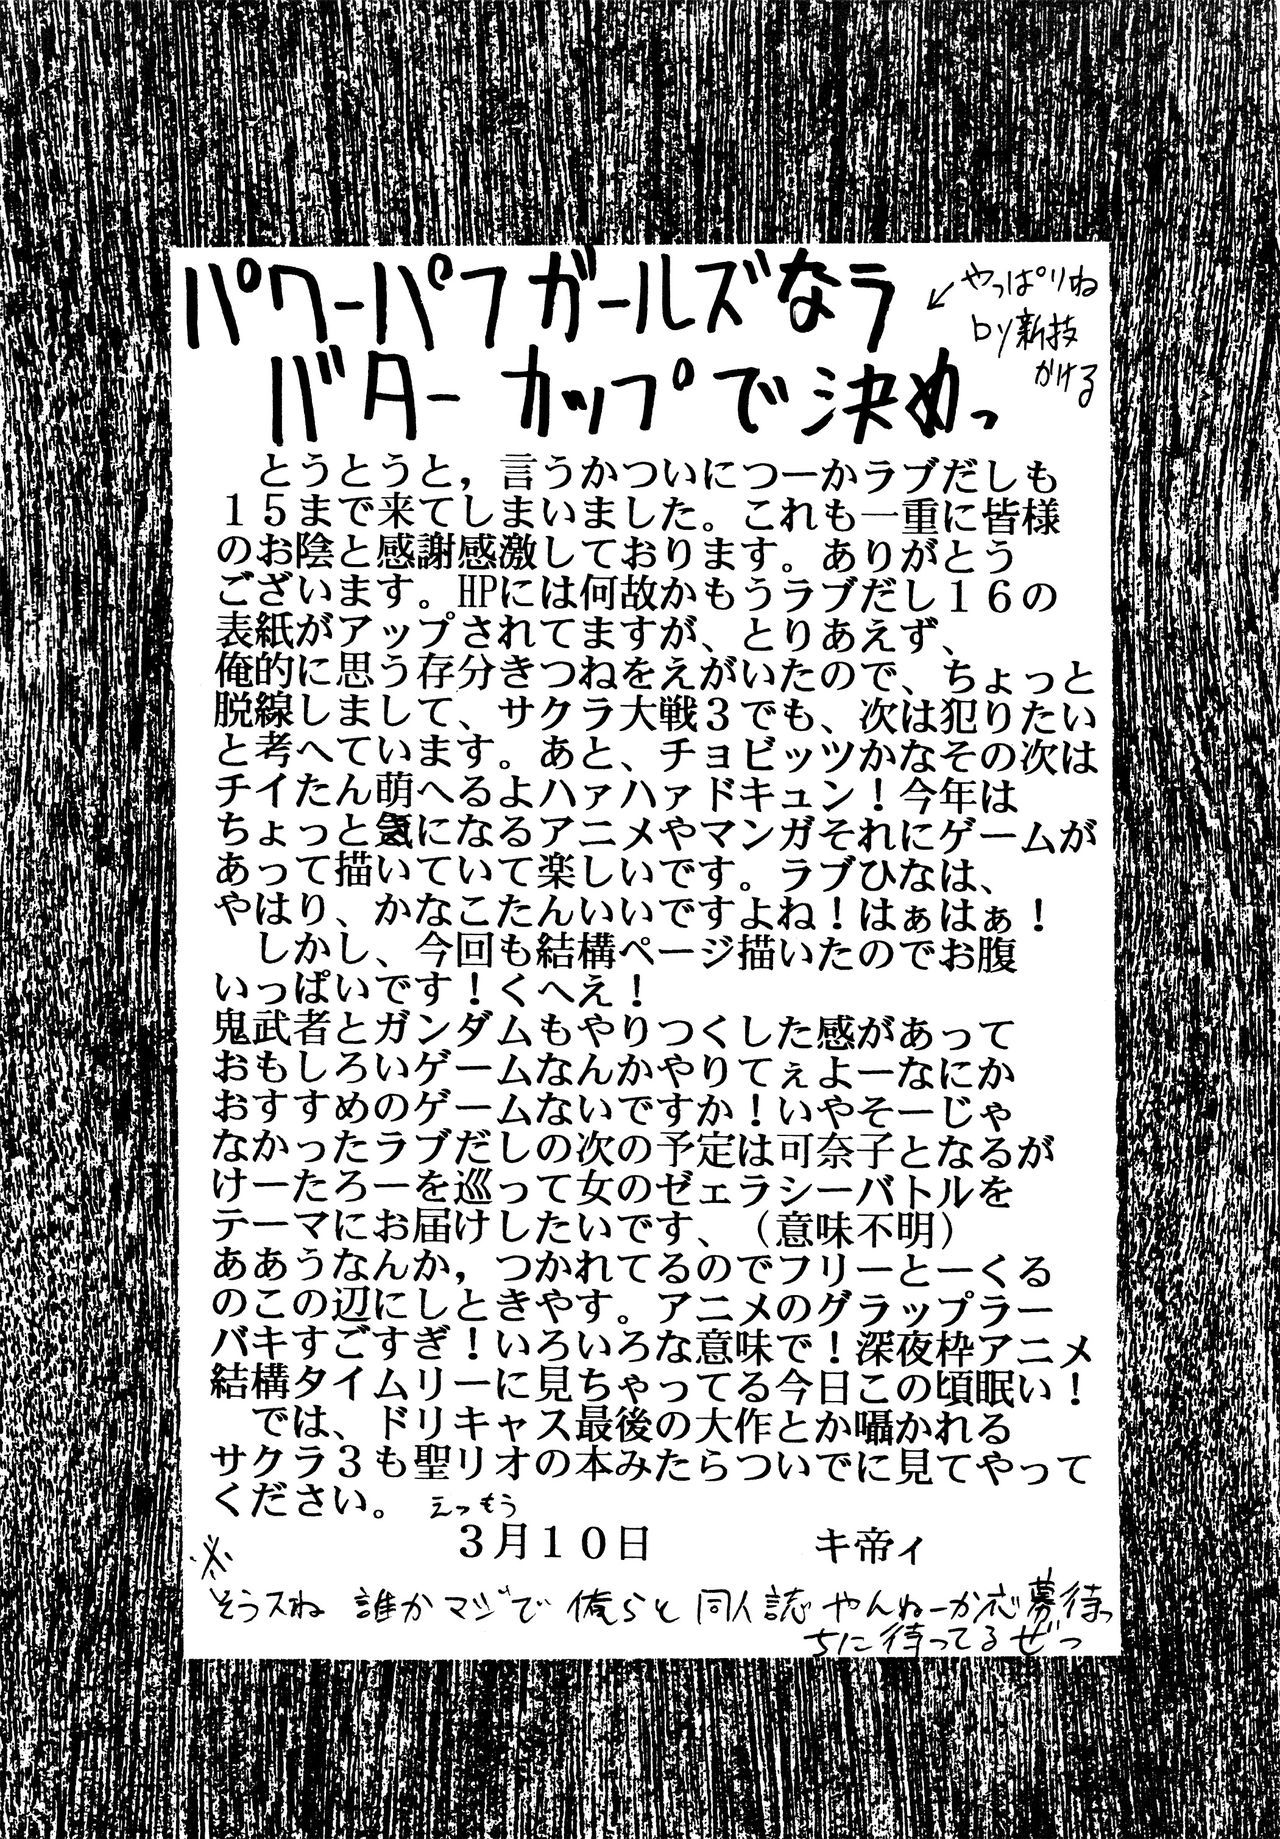 パワーパフガールズなラ
バターカップで決めっ
やっぱりね
by新技
かける
とうとうと，言うかついにつーかラブだしも
１５まで来てしまいました。これも一重に皆様
のお陰と感謝感激しております。ありがとう
ございます。HPには何故かもうラブだし１６の
表紙がアップされてますが、とりあえず、
俺的に思う存分きつねをえがいたので、ちょっと
脱線しまして、サクラ大戦３でも、次は犯りたい
と考へています。あと、チョビッツかなその次は
チイたん萌へるよハァハァドキュン！今年は
ちょっと気になるアニメやマンガそれにゲームが
あって描いていて楽しいです。ラブひなは、
やはり、かなこたんいいですよね！はぁはぁ！
しかし、今回も結構ページ描いたのでお腹
いっぱいです！くへえ！
鬼武者とガンダムもやりつくした感があって
おもしろいゲームなんかやりてぇよーなにか
おすすめのゲームないですか！いやそーじゃ
なかったラブだしの次の予定は可奈子となるが
けーたろーを巡って女のゼェラシーバトルを
テーマにお届けしたいです、（意味不明）
ああうなんか，つかれてるのでフリーとーくる
のこの辺にしときやす。アニメのグラップラー
バキすごすぎ！いろいろな意味で！深夜枠アニメ
結構タイムリーに見ちゃってる今日この頃眠い！
では、ドリキャス最後の大作とか囁かれる
サクラ３も聖リオの本みたらついでに見てやって
ください。 えっもう
３月１０日 キ帝ィ
※
そうスね 誰かマジで 俺らと 同人誌 やんねーか応募待っ
ちに待ってるぜっ